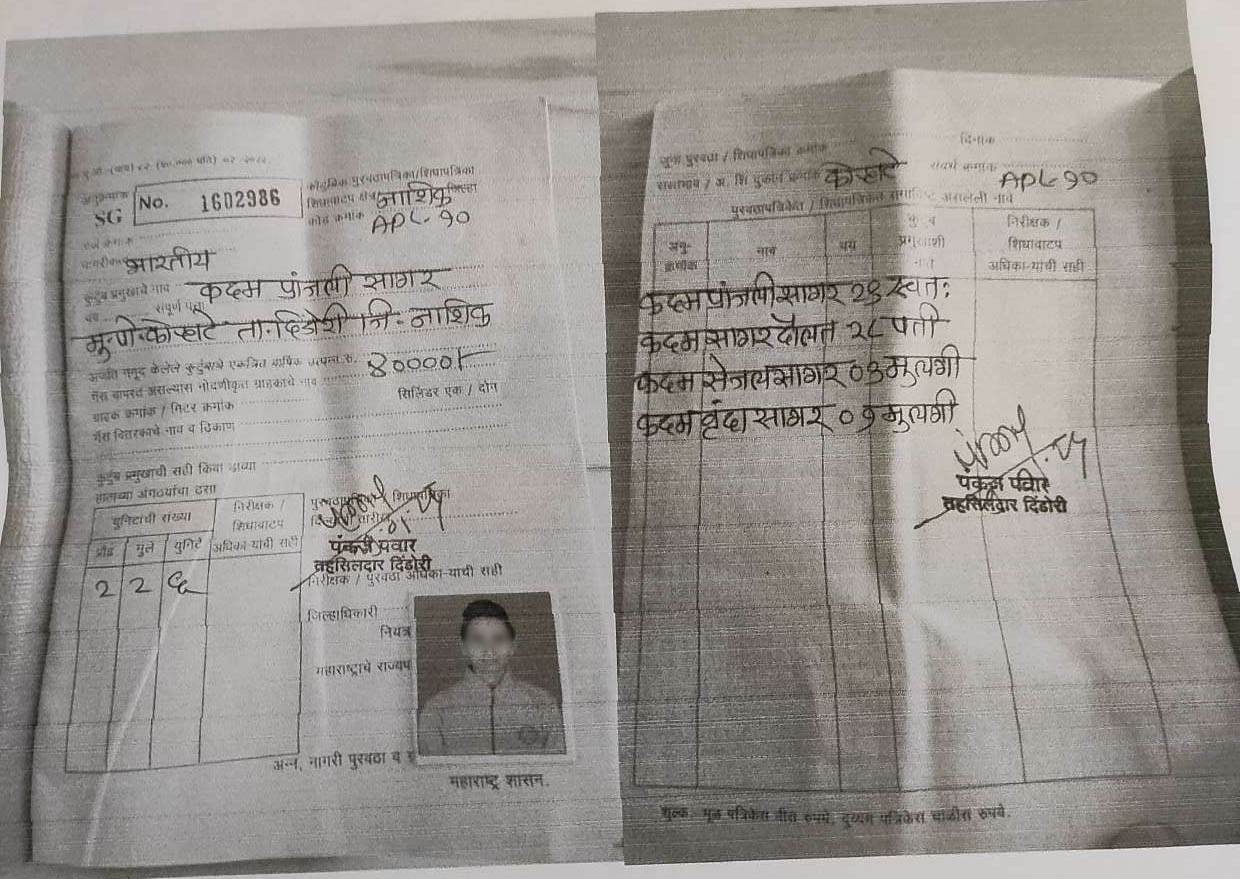 अनुक्रमांक
SG No. 1602986
कौटुंबिक पुरवठापत्रिका/शिधापत्रिका
शिधावाटप क्षेत्र नाशिक जिल्हा
कोड क्रमांक APL-१०
भारतीय
कुटुंब प्रमुखाचे नाव कदम प्रांजली सागर
संपूर्ण पत्ता
मु.पो.कोऱ्हाटे ता.दिंडोरी जि-नाशिक
अर्जात नमूद केलेले कुटुंबाचे एकत्रित वार्षिक उत्पन्न रु. ४००००/-
गॅस वापरत असल्यास नोंदणीकृत ग्राहकाचे नाव
सिलिंडर एक / दोन
ग्राहक क्रमांक / मिटर क्रमांक
गॅस वितरकाचे नाव व ठिकाण
कुटुंब प्रमुखाची सही किंवा डाव्या
हाताच्या अंगठ्याचा ठसा
युनिटांची संख्या
निरीक्षक / शिधावाटप अधिका-यांची सही
प्रौढ मुले युनिटे
2 2 ६
पंकज पवार
तहसिलदार दिंडोरी
निरीक्षक / पुरवठा अधिका-याची सही
जिल्हाधिकारी
नियंत्र
महाराष्ट्राचे राज्यप
अन्न, नागरी पुरवठा व
महाराष्ट्र शासन.
दिनांक
जुना पुरवठा / शिधापत्रिका क्रमांक
कोऱ्हाटे
संदर्भ क्रमांक
APL-१०
पुरवठापत्रिकेत / शिधापत्रिकेत समाविष्ट असलेली नावे
अनु-क्रमांक
नाव
वय
निरीक्षक / शिधावाटप अधिका-यांची सही
कदम प्रांजली सागर २३ स्वतः
कदम सागर दौलत २८ पती
कदम सेजल सागर ०३ मुलगी
कदम वृंदा सागर ०१ मुलगी
पंकज पवार
तहसिलदार दिंडोरी
शुल्क, मूळ पत्रिकेस वीस रुपये, दुय्यम पत्रिकेस चाळीस रुपये.